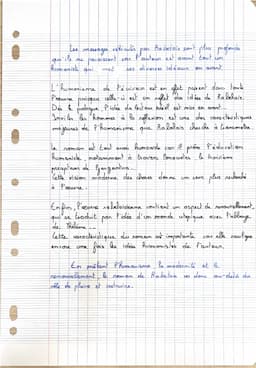 Les messages véhiculés par Rabelais sont plus profonds
qu'ils ne paraissent car l'auteur est avant tout un
humaniste qui met ses diverses idéaux en avant.
L'humanisme de l'écrivain est en effet présent dans toute
l'œuvre puisque celle-ci est un reflet des idées de Rabelais.
Dès le prologue, l'idée de lecteur actif est mise en avant.
Inviter les hommes à la réflexion est une des caractéristiques
majeures de l'Humanisme que Rabelais cherche à transmettre.
Le roman est tout aussi humaniste car il prône l'éducation
humaniste, notamment à travers Ponocrates, le troisième
précepteur de Gargantua.
Cette vision moderne des choses donne un sens plus recherché
à l'œuvre.
Enfin, l'œuvre rabelaisienne contient un aspect de renouvellement
qui se traduit par l'idée d'un monde utopique avec l'abbaye
de Thélème.
Cette caractéristique du roman est importante car elle
encore une fois les idées humanistes de l'auteur.
En prônant l'Humanisme, la modernité et le
renouvellement, le roman de Rabelais va donc au-delà du
rôle de plaire et instruire.